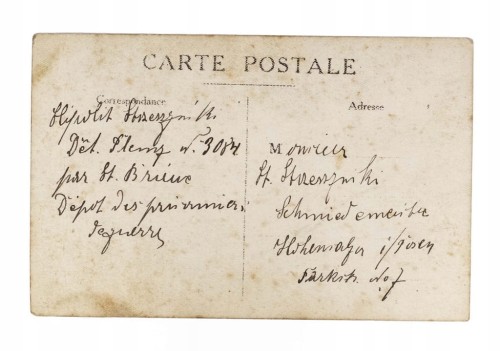 CARTE POSTALE
Correspondance
Hipolit Strzeszyński
Dét. N. 3084
par St. Brieuc
Dépot des prisonniers
de guerre
Adresse
Monsieur
St. Strzeszyński
Schmiedemeister
Hohensalza i/Posen
Parkstr. No 7